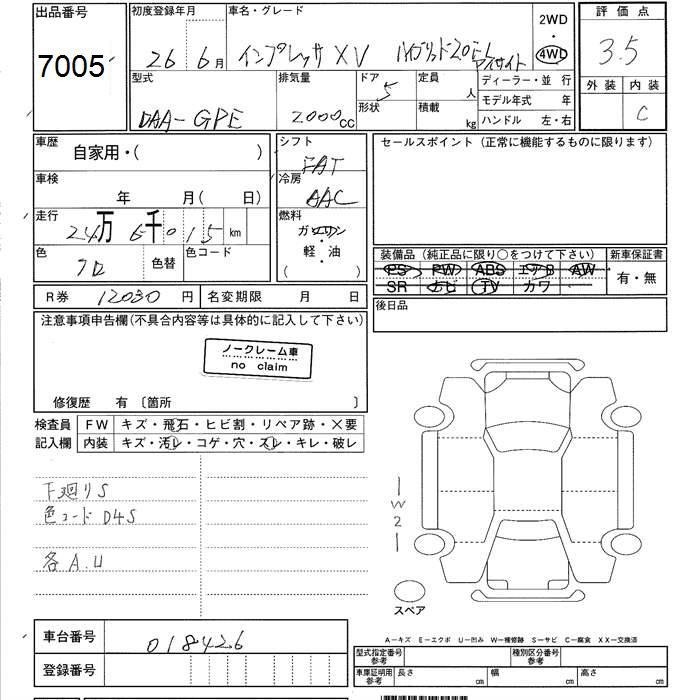 出品番号
7005
初度登録年月
26 6月
車名・グレード
インプレッサXV ハイブリッド2.0i-L
アイサイト
2WD
・
4WD
評価点
3.5
外装 内装
C
型式
DAA-GPE
排気量
2000cc
ドア
5
形状
定員
人
積載
kg
ディーラー・並行
モデル年式 年
ハンドル 左・右
車歴
自家用・( )
車検
年 月( 日)
走行
24万6千015km
色
クロ
色替
色コード
シフト
FAT
冷房
AAC
燃料
ガソリン
・
軽・油
( )
セールスポイント(正常に機能するものに限ります)
装備品(純正品に限り○をつけて下さい)
PS PW ABS エアB AW
SR ナビ TV カワ
新車保証書
有・無
後日品
R券 12030 円
名変期限 月 日
注意事項申告欄(不具合内容等は具体的に記入して下さい)
ノークレーム車
no claim
修復歴 有 〔箇所 〕
検査員
記入欄
FW キズ・飛石・ヒビ割・リペア跡・×要
内装 キズ・汚レ・コゲ・穴・スレ・キレ・破レ
下廻りS
色コード D4S
各A.U
W2
スペア
車台番号
018426
登録番号
A-キズ E-エクボ U-凹み W-補修跡 S-サビ C-腐食 XX-交換済
型式指定番号
参考
種別区分番号
参考
車庫証明用
参考
長さ cm
幅 cm
高さ cm